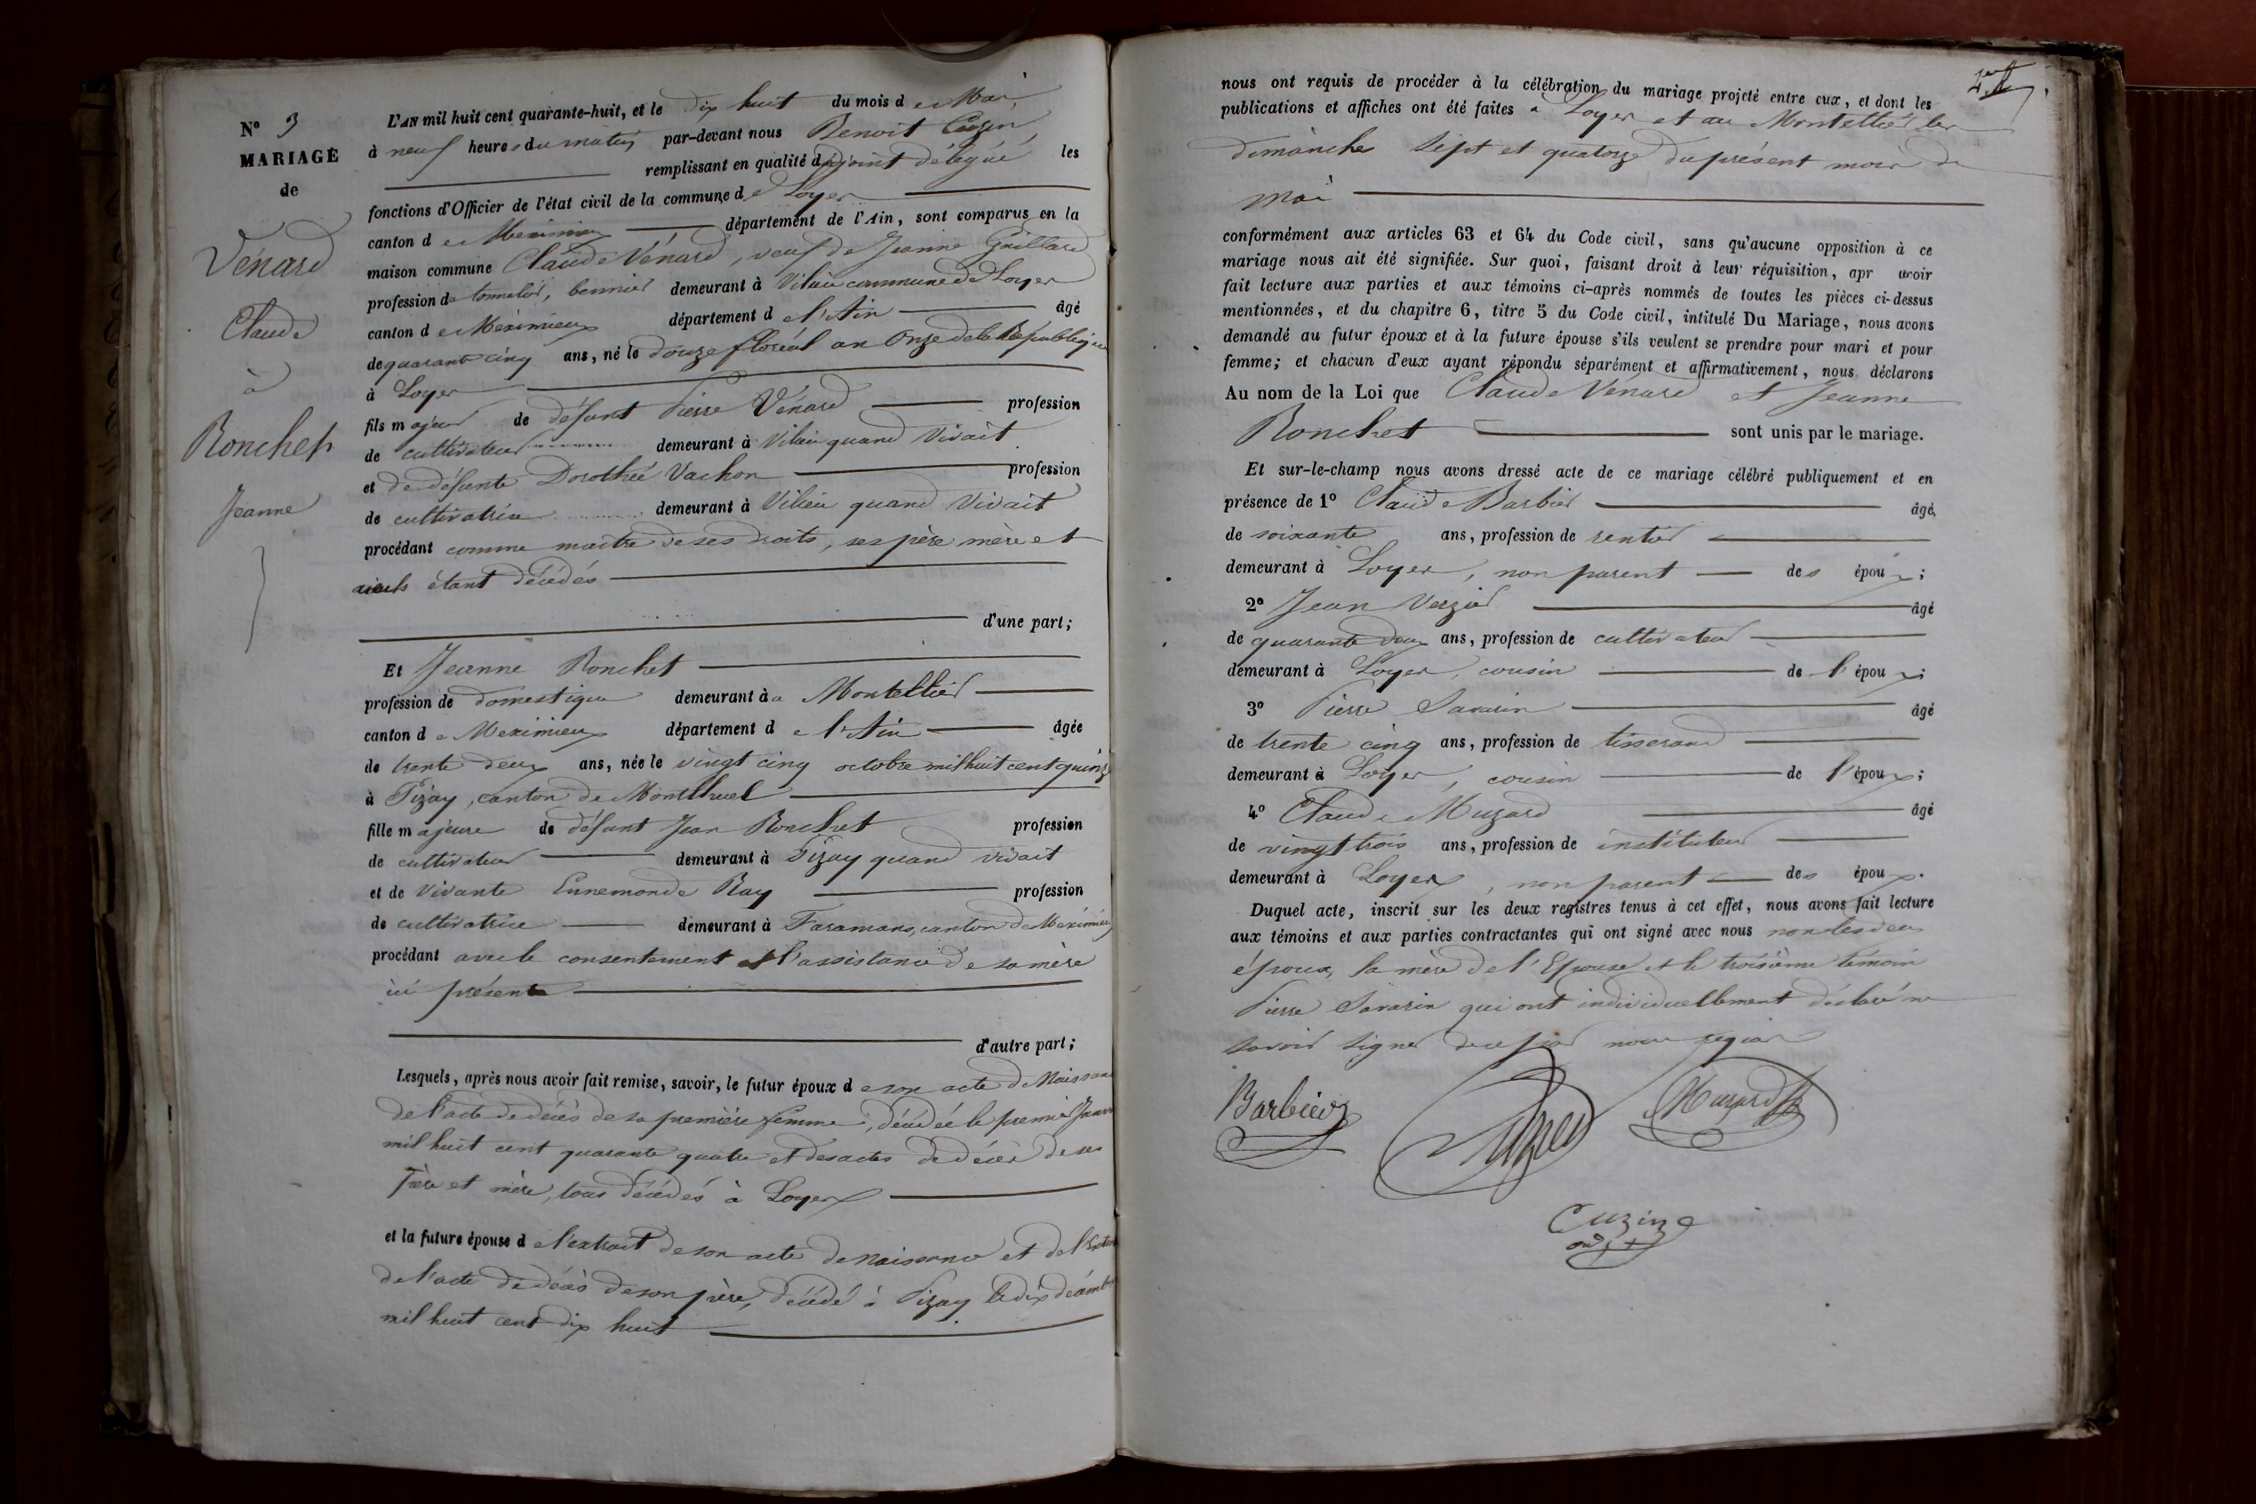 N° 3
MARIAGE
de
Vénard
Claude
à
Ronchet
Jeanne
L'AN mil huit cent quarante-huit, et le dix huit du mois de Mai,
à neuf heures du matin par-devant nous Benoit Cuzin,
remplissant en qualité d'adjoint délégué les
fonctions d'Officier de l'état civil de la commune de Loyes
canton de Meximieux département de l'Ain, sont comparus en la
maison commune Claude Vénard, veuf de Jeanne Gaillard
profession de tonnelier, demeurant à Vilieu commune de Loyes
canton de Meximieux département de l'Ain âgé
de quarante cinq ans, né le douze floréal an Onze de la République
à Loyes
fils majeur de défunt Pierre Vénard profession
de cultivateur demeurant à Vilieu quand vivait
et de défunte Dorothée Vachon profession
de cultivatrice demeurant à Vilieu quand vivait
procédant comme maitre de ses droits, ses père mère et
aieuls étant décédés
d'une part;
Et Jeanne Ronchet
profession de domestique demeurant à Montellier
canton de Meximieux département de l'Ain âgée
de trente deux ans, née le vingt cinq octobre mil huit cent quinze
à Pizay, canton de Montluel
fille majeure de défunt Jean Ronchet profession
de cultivateur demeurant à Pizay quand vivait
et de vivante Ennemonde Ray profession
de cultivatrice demeurant à Faramans, canton de Meximieux
procédant avec le consentement et l'assistance de sa mère
ici présente
d'autre part;
Lesquels, après nous avoir fait remise, savoir, le futur époux de son acte de Naissance
de l'acte de décès de sa première femme, décédée le premier Janvier
mil huit cent quarante quatre et des actes de décès de ses
Père et mère, tous décédés à Loyes
et la future épouse de l'extrait de son acte de naissance et de l'extrait
de l'acte de décès de son père, décédé à Pizay le dix décembre
mil huit cent dix huit
nous ont requis de procéder à la célébration du mariage projeté entre eux, et dont les
publications et affiches ont été faites à Loyes et au Montellier les
dimanches sept et quatorze du présent mois de
Mai
conformément aux articles 63 et 64 du Code civil, sans qu'aucune opposition à ce
mariage nous ait été signifiée. Sur quoi, faisant droit à leur réquisition, apr avoir
fait lecture aux parties et aux témoins ci-après nommés de toutes les pièces ci-dessus
mentionnées, et du chapitre 6, titre 5 du Code civil, intitulé Du Mariage, nous avons
demandé au futur époux et à la future épouse s'ils veulent se prendre pour mari et pour
femme; et chacun d'eux ayant répondu séparément et affirmativement, nous déclarons
Au nom de la Loi que Claude Vénard et Jeanne
Ronchet sont unis par le mariage.
Et sur-le-champ nous avons dressé acte de ce mariage célébré publiquement et en
présence de 1° Claude Barbier âgé,
de soixante ans, profession de rentier
demeurant à Loyes, non parent des époux;
2° Jean Verzier âgé
de quarante deux ans, profession de cultivateur
demeurant à Loyes, cousin de l'époux;
3° Pierre Savarin âgé
de trente cinq ans, profession de tisserand
demeurant à Loyes, cousin de l'époux;
4° Claude Muzard âgé
de vingt trois ans, profession de instituteur
demeurant à Loyes, non parent des époux.
Duquel acte, inscrit sur les deux registres tenus à cet effet, nous avons fait lecture
aux témoins et aux parties contractantes qui ont signé avec nous non les deux
époux, la mère de l'Epouse et le troisième témoin
Pierre Savarin qui ont individuellement déclaré ne
savoir signer de ce par nous requis
Barbier
Muzard
Cuzin
adj